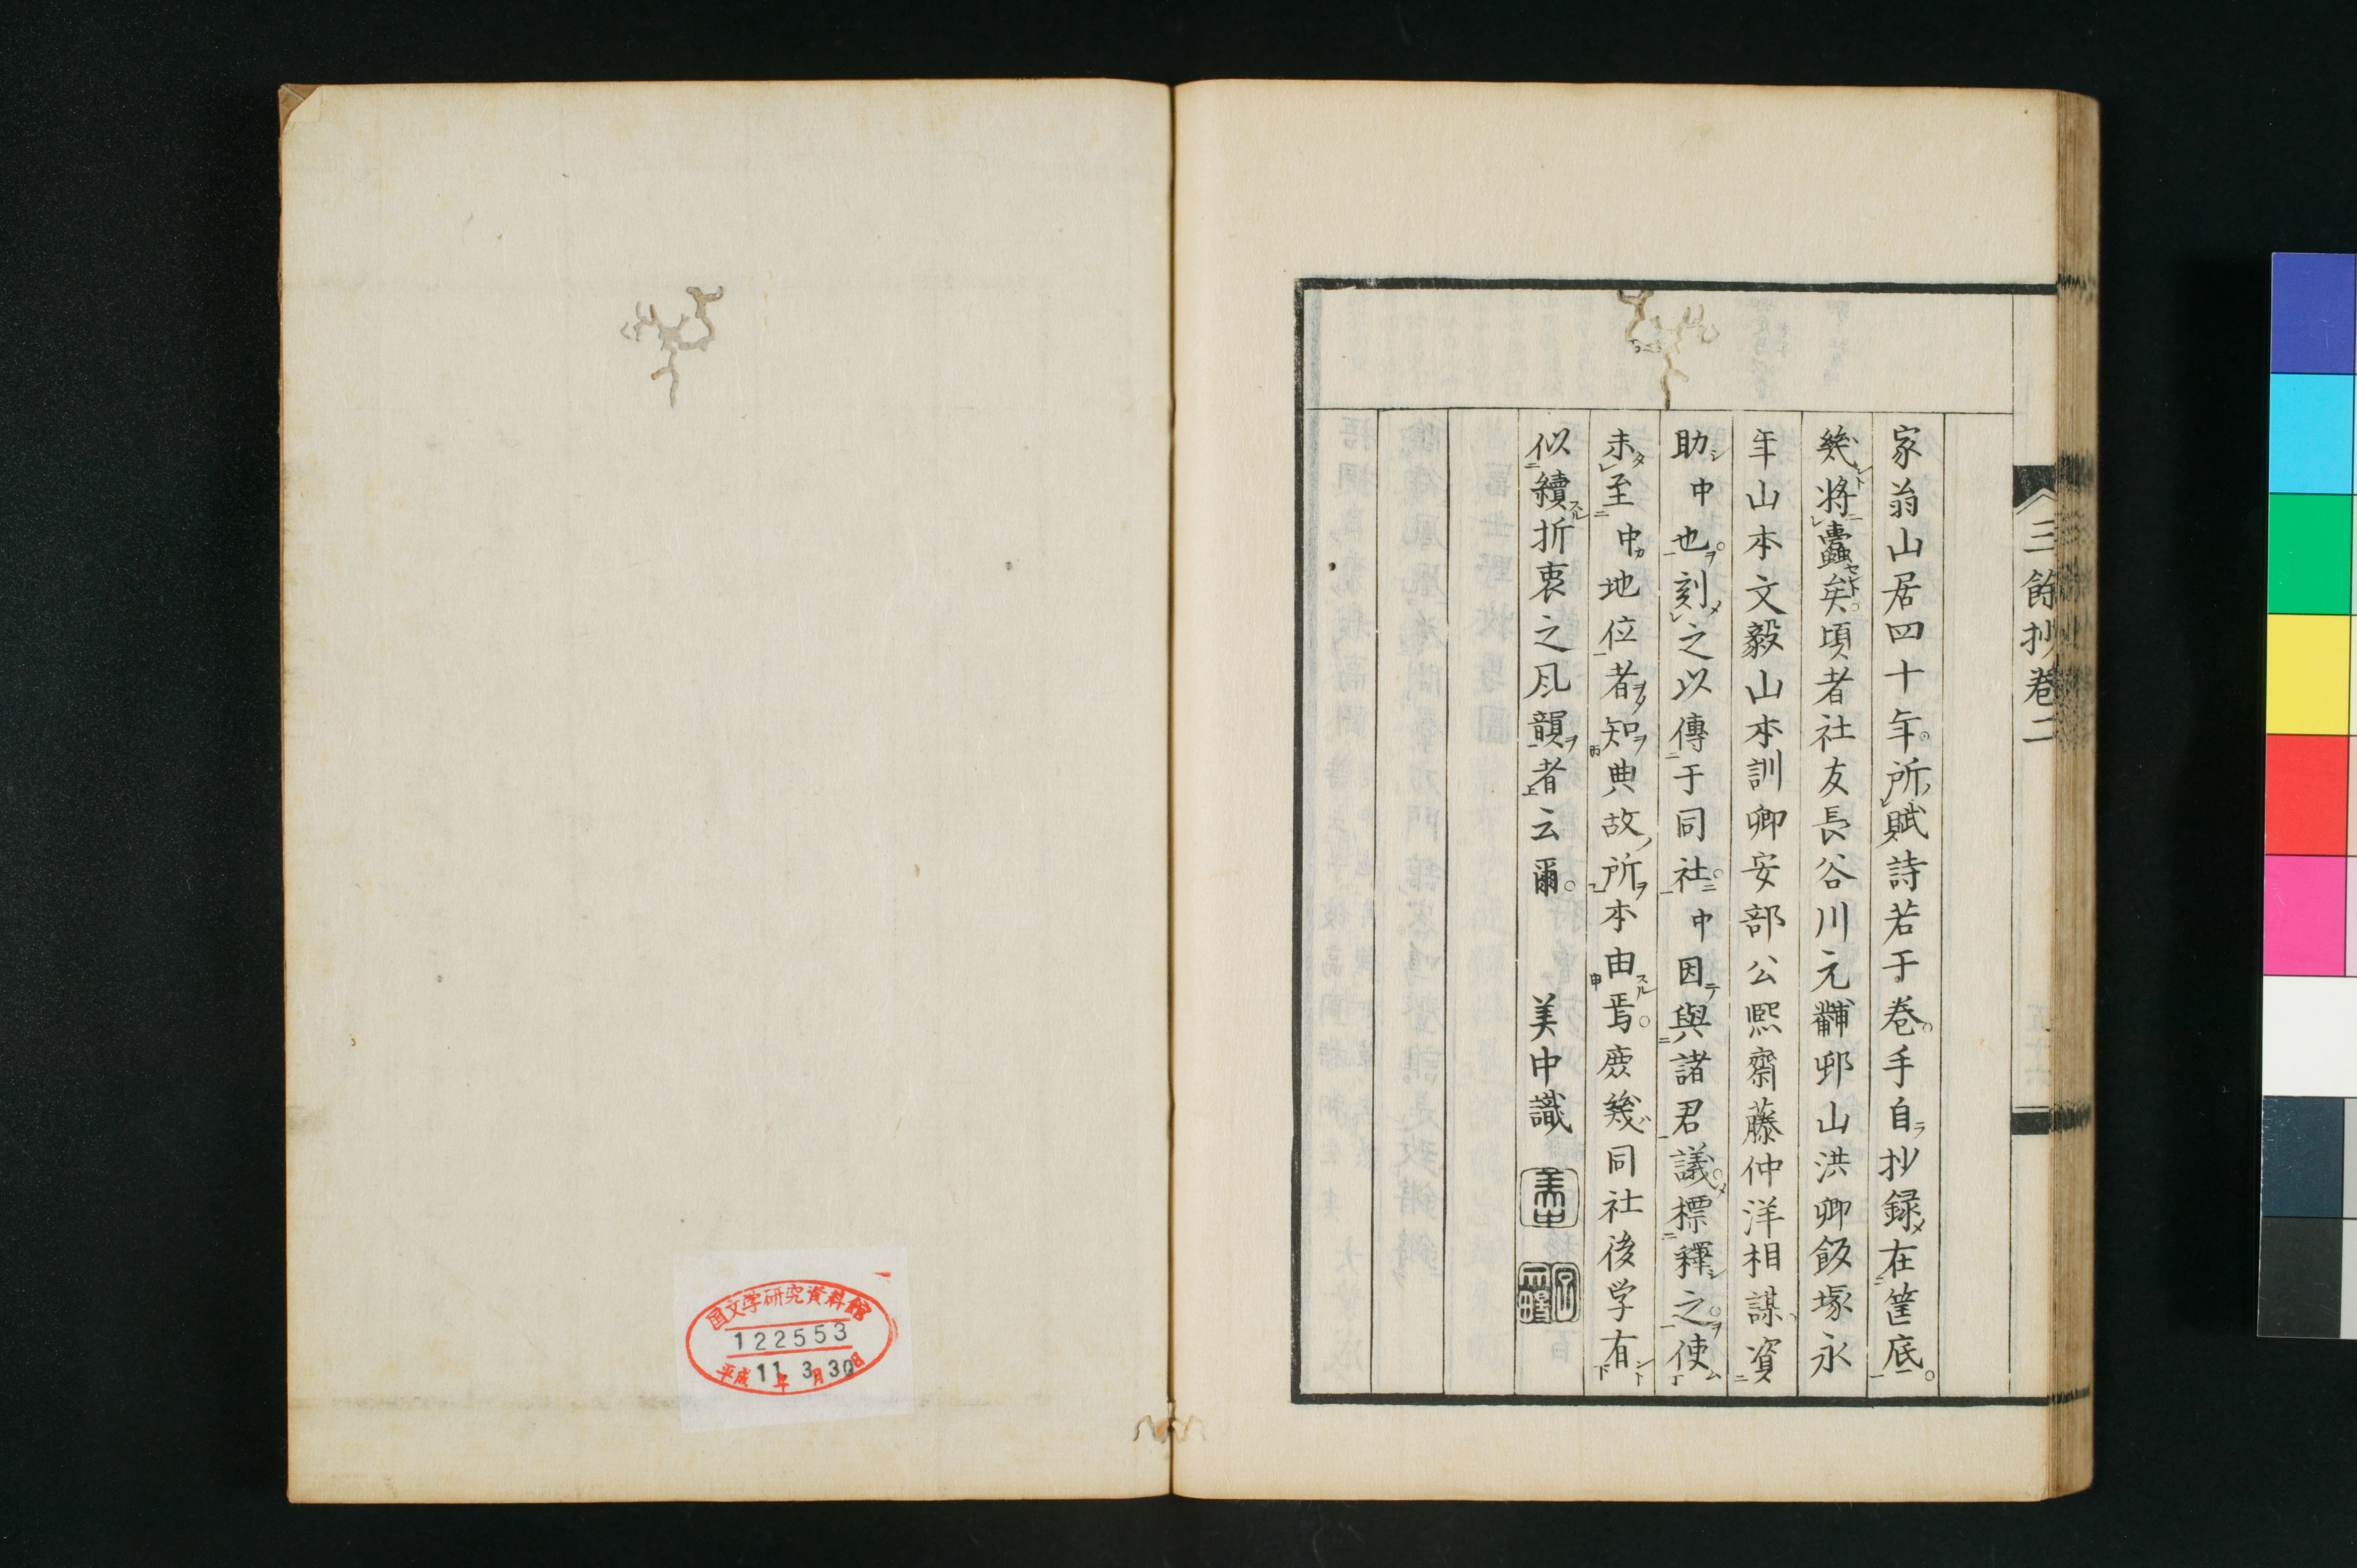 三餘抄巻二
家翁山居四十年。所賦詩若于巻。手自抄録在筐底。
幾將蠹矣。頃者社友長谷川元黼邨山洪卿飯塚永
年山本文毅山本訓卿安部公熙齋藤仲洋相謀資
助中也。刻之以傳于同社。中因與諸君議。標釋之。使
未至中地位者知典故所本由焉。庶幾同社後学有
似續折衷之風韻者云爾。　美中識
国文学研究資料館
122553
平成11年3月30日